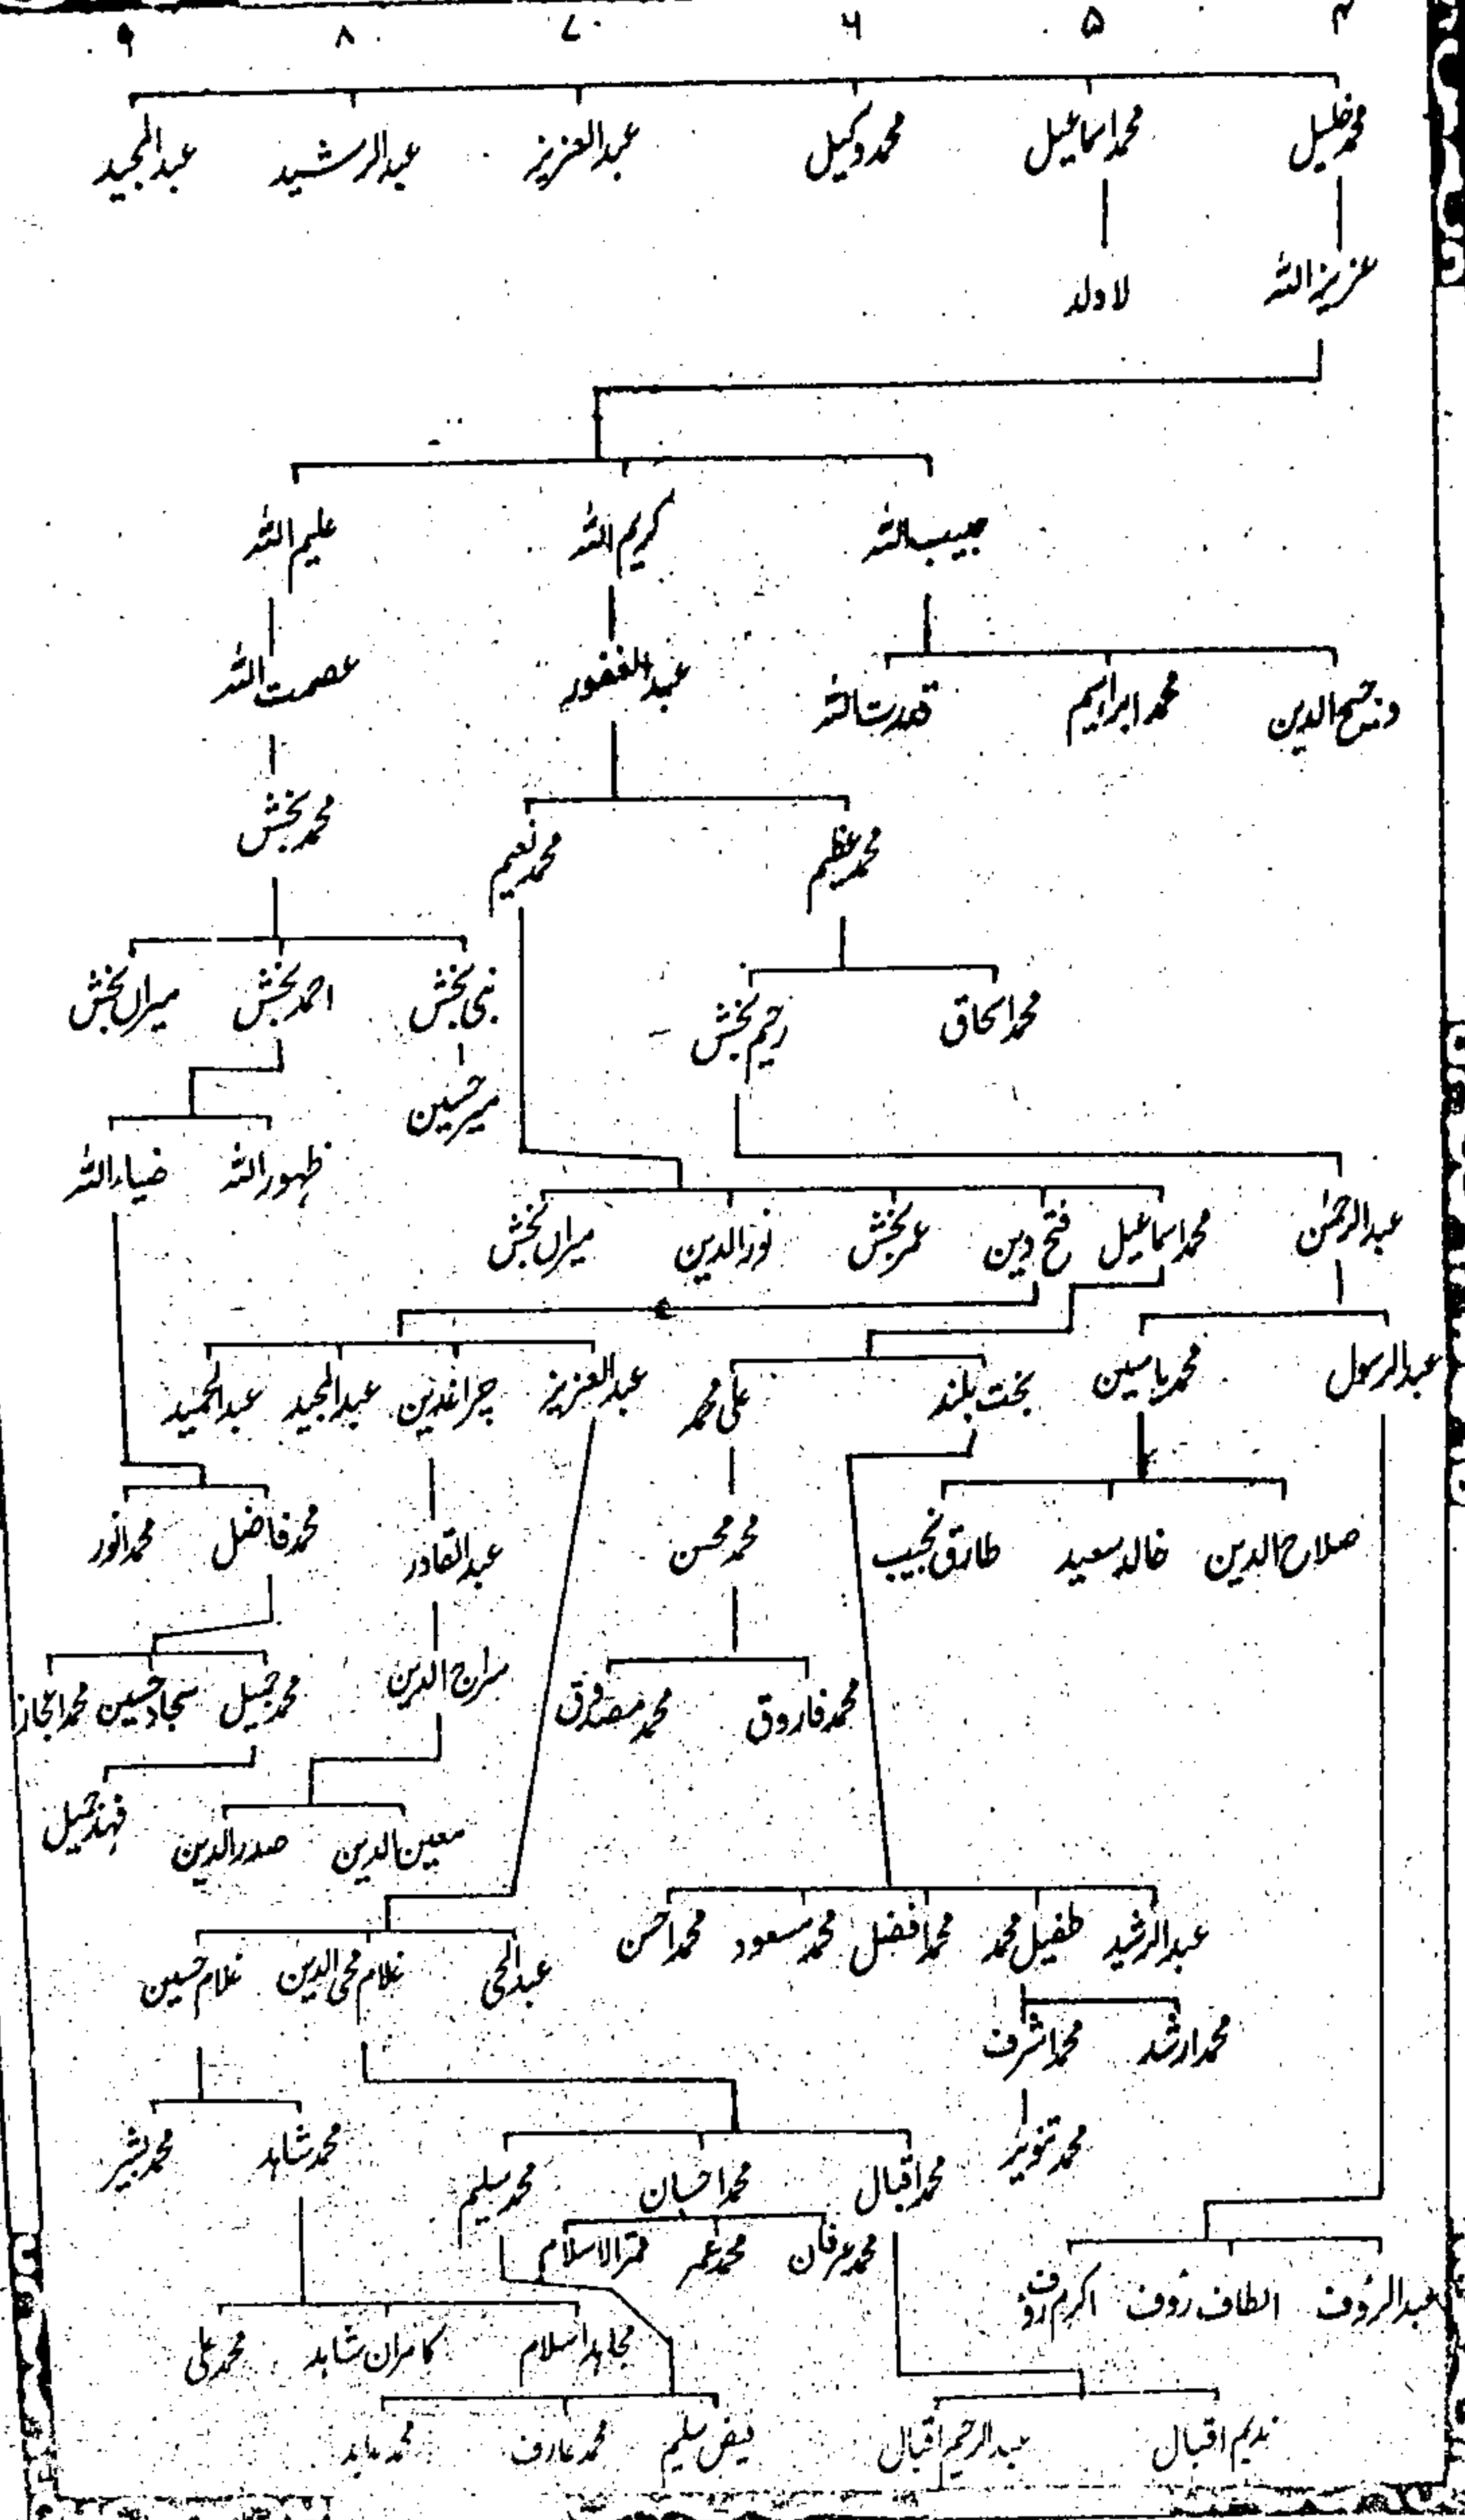 ۴ ۵ ۶ ۷ ۸ ۹
محمد خلیل محمد اسماعیل محمد وکیل عبدالعزیز عبدالرشید عبدالمجید
عزیز اللہ لاولد
حبیب اللہ کریم اللہ علیم اللہ
فتح الدین محمد ابراہیم قدرت اللہ عبدالغفور عصمت اللہ
محمد عظیم محمد نعیم محمد بخش
محمد اسحاق رحیم بخش نبی بخش احمد بخش میراں بخش
میر حسین
ظہور اللہ ضیاء اللہ
عبدالرحمٰن محمد اسماعیل فتح دین عمر بخش نور الدین میراں بخش
عبدالرسول محمد یاسین بخت بلند علی محمد عبدالعزیز چراغدین عبدالمجید عبدالحمید
صلاح الدین خالد سعید طارق نجیب محمد محسن عبدالقادر محمد فاضل محمد انور
محمد فاروق محمد مصدق سراج الدین محمد جمیل سجاد حسین محمد اعجاز
معین الدین صدر الدین فہد جمیل
عبدالرشید طفیل محمد محمد افضل محمد مسعود محمد احسن
عبدالحی غلام محی الدین غلام حسین
محمد ارشد محمد اشرف
محمد تنویر محمد اقبال محمد احسان محمد سلیم محمد شاہد محمد بشیر
محمد عرفان محمد عمر قمر الاسلام
عبدالرؤف الطاف رؤف اکرم رؤف
مجاہد اسلام کامران شاہد محمد علی
ندیم اقبال عبدالرحیم اقبال فیض سلیم محمد عارف محمد عابد